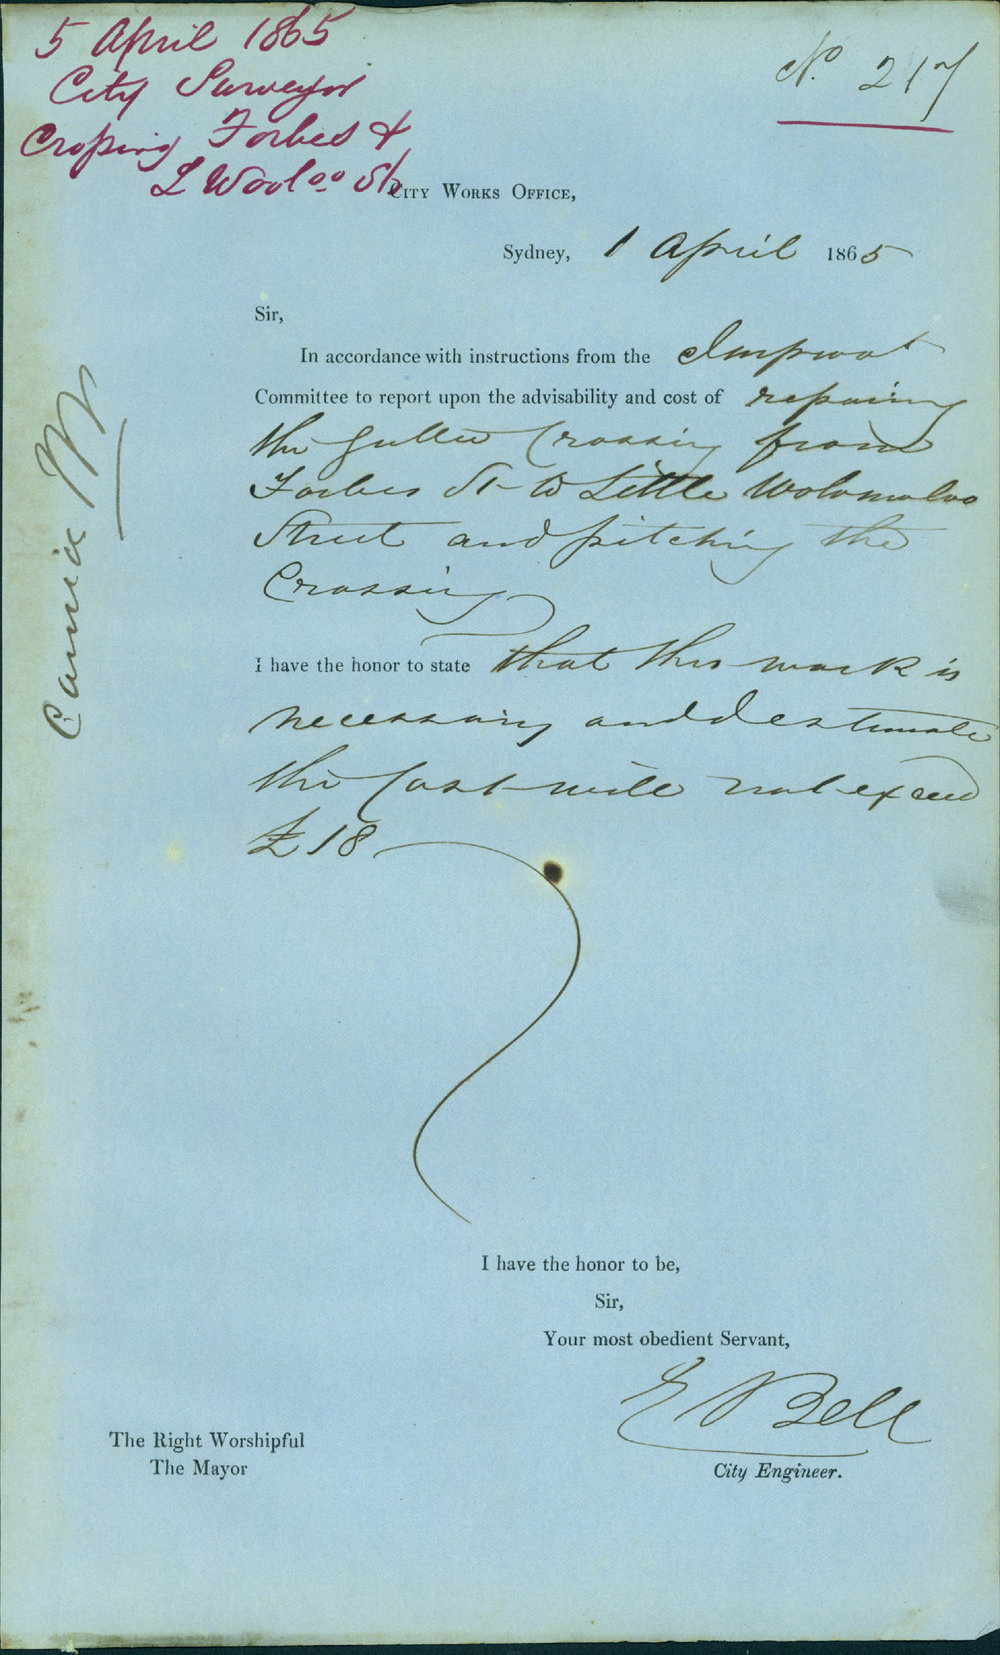 5 April 1865
City Surveyor
Crossing Forbes &
L Wooloo St
No. 217
CITY WORKS OFFICE,
Sydney, 1 April 1865
Sir,
In accordance with instructions from the Improvt
Committee to report upon the advisability and cost of repairing
the gutter Crossing from
Forbes St to Little Wolomoloo
Street and pitching the
Crossing
I have the honor to state that this work is
necessary and I estimate
the Cost will not exceed
£18
I have the honor to be,
Sir,
Your most obedient Servant,
E Bell
City Engineer.
The Right Worshipful
The Mayor